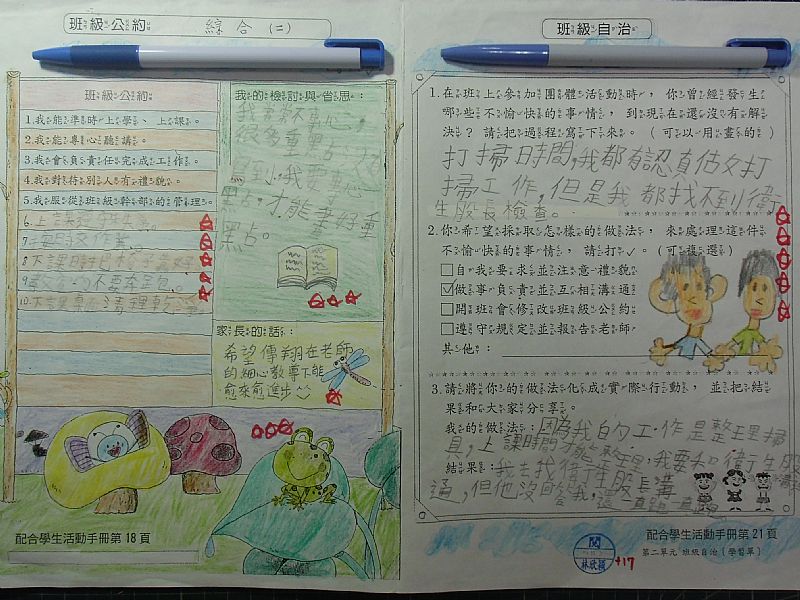 班級公約
綜合(二)
班級公約
1.我能準時上學、上課。
2.我能專心聽講。
3.我會負責任完成工作。
4.我對待別人有禮貌。
5.我服從班級幹部的管理。
6.上課
7.
8下課時把椅子靠好
9 不要
10.下課桌 清理乾淨
我的檢討與省思:
很多重點
到,我要專心
點,才能畫好重
點。
家長的話:
希望傳翔在老師
的細心教導下能
愈來愈進步
配合學生活動手冊第18頁
班級自治
1.在班上參加團體活動時,你曾經發生
哪些不愉快的事情,到現在還沒有解
決?請把過程寫下來。(可以用畫的)
打掃時間,我都有認真估文打
掃工作,但是我都找不到衛
生股長檢查。
2.你希望採取怎樣的做法,來處理這件
不愉快的事情,請打✓。(可複選)
□自我要求並注意禮貌
☑做事負責並互相溝通
□開班會修改班級公約
□遵守規定並報告老師
其他:
3.請將你的做法化成實際行動,並把結
果和大家分享。
我的做法:因為我的工作是整理掃
具,上課時間才能整理,我要和衛生股
結果:我去找衛生股長溝
通,但他沒回答我,還一直跑一直跑
配合學生活動手冊第21頁
第二單元 班級自治〔學習單〕
閱
林欣穎
+17